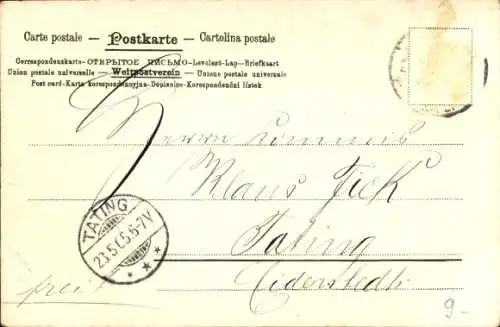 Carte postale – Postkarte – Cartolina postale
Correspondenzkarte-ОТКРЫТОЕ ПИСЬМО-Levelező-Lap-Briefkaart
Union postale universelle – Weltpostverein – Unione postale universale
Post card-Karta korespondencyjna-Dopisnice-Korespondenční lístek
Herrn Commis
Klaus Fick
TATING
23.5.05.6-7V
* * *
Tating
Eiderstedt
frei
9-